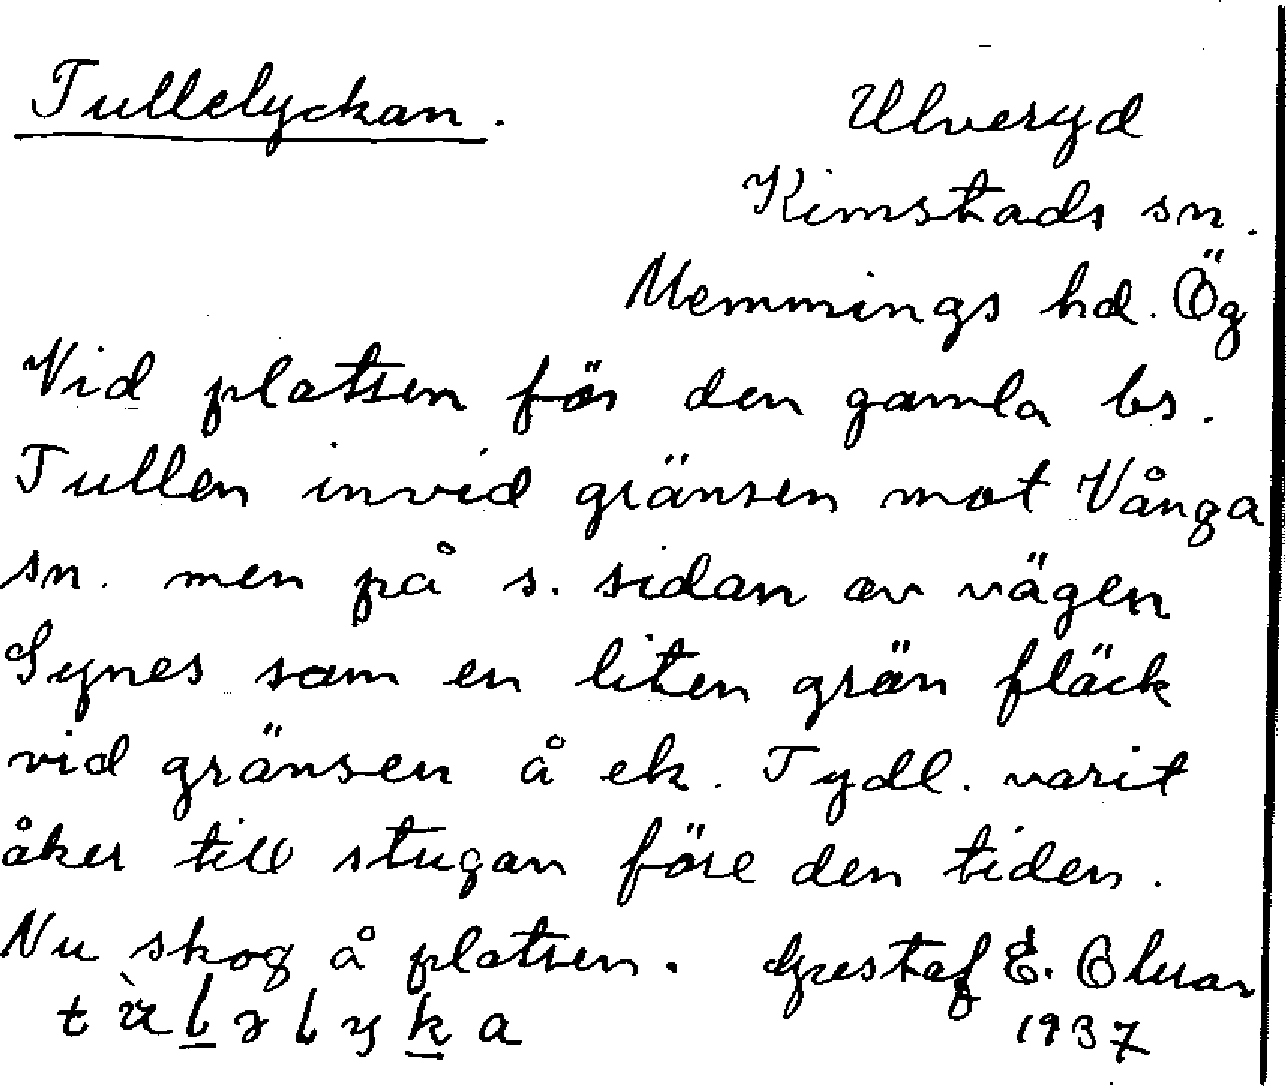 Tullelyckan.
Ulveryd
Kimstads sn.
Memmings hd. Ög
Vid platsen för den gamla bs.
Tullen invid gränsen mot Vånga
sn. men på s. sidan av vägen
Synes som en liten grön fläck
vid gränsen å ek. Tydl. varit
åker till stugan före den tiden.
Nu skog å platsen. Gustaf E.
t ù l ə l y k a
1937